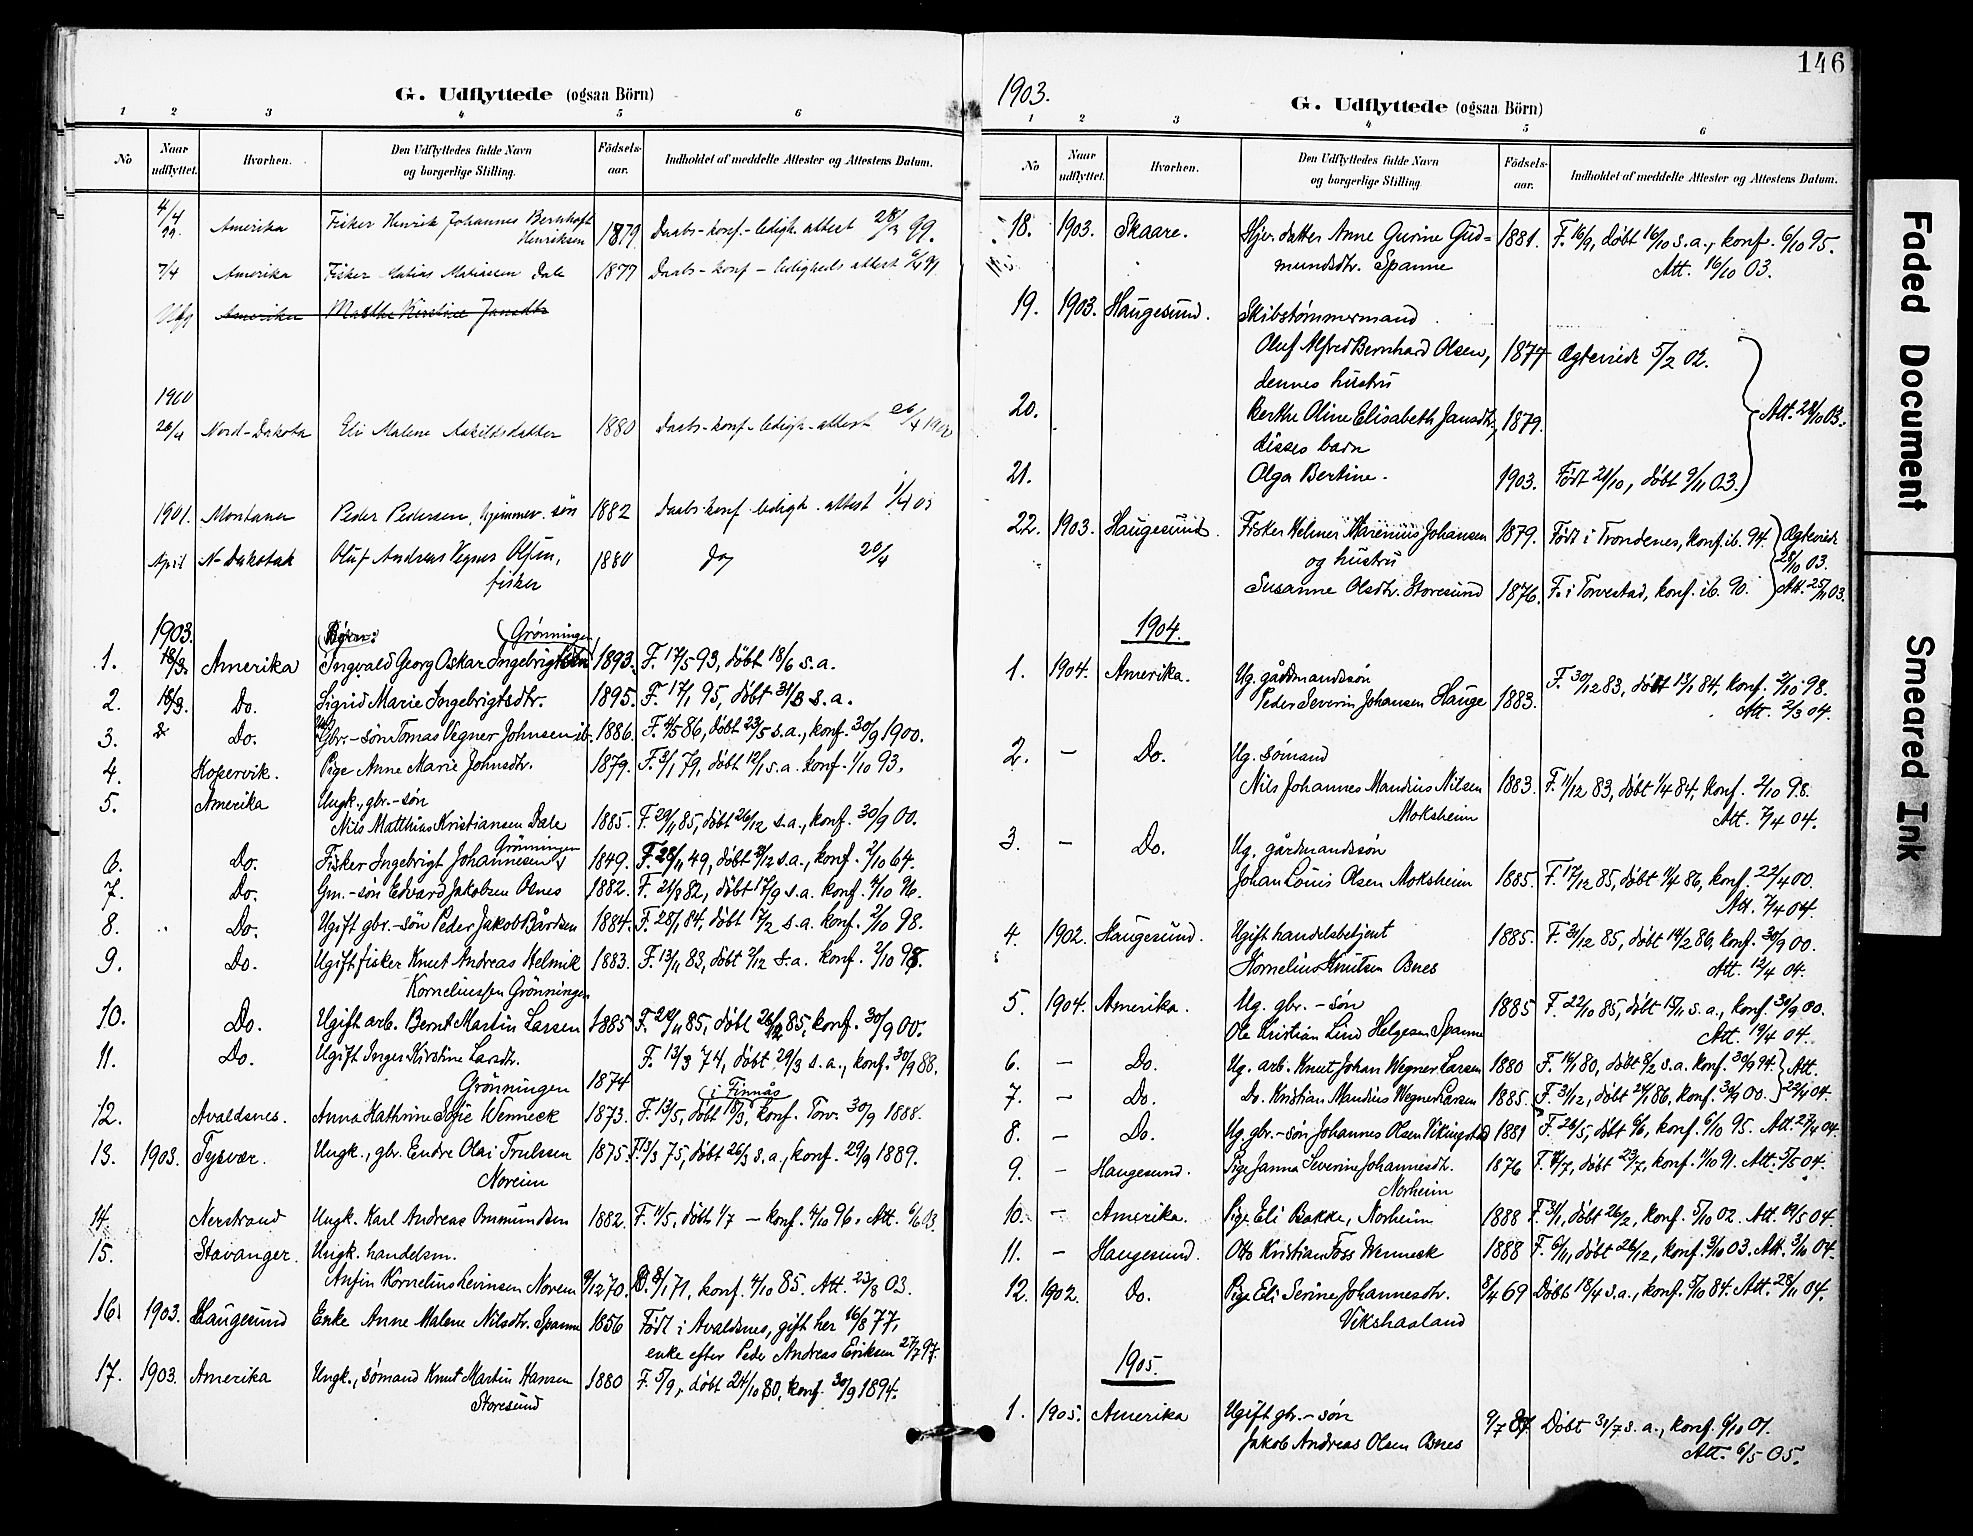 G. Udflyttede (ogsaa Börn)
1 2 3 4 5 6
No Naar udflyttet. Hvorhen. Den Udflyttedes fulde Navn og borgerlige Stilling. Födselsaar. Indholdet af meddelte Attester og Attestens Datum.
4/4 99. Amerika Fisker Henrik Johannes Bernhoft 1879. Daabs-konf.-ledigh. attest 28/3 99.
Henriksen
7/4 Amerika Fisker Matias Matiassen Dale 1877 Daabs-konf-ledigheds attest
Amerika Marthe Kirstine Jansdtr
1900
26/4 Nord-Dakota Eli Malene Askildsdatter 1880 Daabs-konf-ledigh.-attest 26/4 1900
1901. Montana Peder Pedersen, hjemmev. søn 1882 Daabs konf ledigh. attest
April N-Dakotak Oluf Andreas Vegner Olsen, 1880 Do 20/4
fisker
1903. Børn: Grönningen
1. 18/3. Amerika Ingvald Georg Oskar Ingebrigtsen 1893. F. 17/5 93, döbt 18/6 s.a.
2. 18/3. Do. Sigrid Marie Ingebrigtsdtr. 1895. F. 17/1 95, döbt 31/3 s.a.
3. Do. Gbr.-søn Tomas Vegner Johnsen ib. 1886. F. 4/5 86, döbt 23/5 s.a., konf. 30/9 1900.
4. Kopervik. Pige Anne Marie Johnsdtr. 1879. F. 3/1 79, döbt 12/1 s.a. konf. 1/10 93.
5. Amerika Ungk., gbr.-søn
Nils Matthias Kristiansen Dale 1885. F. 29/11 85, döbt 26/12 s.a., konf. 30/9 00.
Grönningen
6. Do. Fisker Ingebrigt Johannesen 1849. F. 28/11 49, döbt 31/12 s.a., konf. 2/10 64.
7. Do. Gm.-søn Edvard Jakobsen Osnes 1882. F. 21/8 82, döbt 17/9 s.a. konf. 4/10 96.
8. Do. Ugift gbr.-søn Peder Jakob Bårdsen 1884. F. 28/1 84, döbt 17/2 s.a. konf. 2/10 98.
9. Do. Ugift fisker Knut Andreas Helmik 1883. F. 13/11 83, döbt 2/12 s.a. konf. 2/10 98.
Korneliussen Grönningen
10. Do. Ugift arb. Bernt Martin Larsen 1885 F. 20/11 85, döbt 26/12 85, konf. 30/9 00.
11. Do. Ugift Inger Kirstine Larsdtr. F. 13/3 74, döbt 29/3 s.a., konf. 30/9 88.
Grönningen 1874 i Finnås
12. Avaldsnes. Anna Kathrine Sofie Wenneck 1873. F. 13/5, döbt 19/3, konf. Torv. 30/9 1888.
13. 1903. Tysvær. Ungk., gbr. Endre Olai Trulssen 1875. F. 3/3 75, döbt 26/3 s.a., konf. 29/9 1889.
Noreim
14. Nerstrand Ungk. Karl Andreas Ommundsen 1882. F. 11/5, döbt 1/7 – konf. 4/10 96. Att. 6/6 03.
15. Stavanger. Ungk. handelsm.
Anfin Kornelius Levinsen Noreim 9/12 70. D. 8/1 71, konf. 4/10 85. Att. 23/8 03.
16. 1903. Haugesund Enke Anne Malene Nilsdtr. Spanne 1856 Född i Avaldsnes, gift her 16/8 77,
enke efter Peder Andreas Eriksen 27/7 97.
17. 1903. Amerika Ungk., sømand Knut Martin Hansen 1880 F. 5/9, döbt 24/10 80, konf. 30/9 1894.
Storesund
146
1903.
G. Udflyttede (ogsaa Börn)
1 2 3 4 5 6
No Naar udflyttet. Hvorhen. Den Udflyttedes fulde Navn og borgerlige Stilling. Födselsaar. Indholdet af meddelte Attester og Attestens Datum.
18. 1903. Skaare. Hjv. datter Anne Gurine Gud= 1881. F. 16/9, döbt 16/10 s.a., konf. 6/10 95.
mundsdtr. Spanne Att. 16/10 03.
19. 1903. Haugesund. Skibstømmermand
Oluf Alfred Bernhard Olsen, 1877 Ægteviede 5/2 02.
dennes hustru
20. Berthe Oline Elisabeth Jansdtr, 1879. Att. 28/10 03.
disses barn
21. Olga Bertine. 1903. Född 21/10, döbt 9/11 03.
22. 1903. Haugesund. Fisker Helmer Marenius Johansen 1879. Född i Trondenes, konf. ib. 94. Ægteviede
og hustru 28/10 03.
Susanne Olsdtr. Storesund 1876. F. i Torvestad, konf. ib. 90. Att. 25/11 03.
1904.
1. 1904. Amerika. Ug. gårdmandssøn F. 30/12 83, döbt 13/1 84, konf. 2/10 98.
Peder Severin Johansen Hauge 1883. Att. 2/3 04.
2. – Do. Ug. sømand
Nils Johannes Mandius Nilsen 1883. F. 11/12 83, döbt 1/4 84, konf. 2/10 98.
Moksheim Att. 7/4 04.
3. – Do. Ug. gårdmandssøn
Johan Louis Olsen Moksheim 1885. F. 17/12 85, döbt 4/4 86, konf. 22/4 00.
Att. 7/4 04.
4. 1902. Haugesund. Ugift handelsbetjent 1885. F. 31/12 85, döbt 14/2 86, konf. 30/9 00.
Kornelius Knutsen Osnes Att. 12/4 04.
5. 1904. Amerika. Ug. gbr.-søn 1885 F. 22/10 85, döbt 15/11 s.a., konf. 30/9 00.
Ole Kristian Lind Helgesen Spanne Att. 19/4 04.
6. – Do. Ug. arb. Knut Johan Wegner Larsen 1880 F. 14/1 80, döbt 8/2 s.a. konf. 30/9 94. Att.
7. – Do. Do. Kristian Mandius Wegner Larsen 1885. F. 31/12, döbt 24/1 86, konf. 30/9 00. 22/4 04.
8. – Do. Ug. gbr.-søn Johannes Olsen Vikingstad 1881 F. 26/5, döbt 6/6, konf. 6/10 95. Att. 27/4 04.
9. – Haugesund. Pige Janna Severine Johannesdtr. 1876 F. 4/7, döbt 23/7, konf. 4/10 91. Att. 5/5 04.
Norheim
10. – Amerika. Pige Eli Bakke, Norheim 1888 F. 31/1, döbt 26/2, konf. 5/10 02. Att. 19/5 04.
11. – Haugesund. Otto Kristian Foss Wenneck 1888 F. 6/11, döbt 26/12, konf. 3/10 03. Att. 3/10 04.
12. 1902. Do. Pige Eli Serine Johannesdtr. 8/4 69 Döbt 18/4 s.a., konf. 5/10 84. Att. 28/11 04.
Vikshaaland
1905.
1. 1905. Amerika Ugift gbr.-søn 9/7 87. Döbt 31/7 s.a., konf. 6/10 01.
Jakob Andreas Olsen Osnes Att. 6/5 05.
Faded Document
Smeared Ink